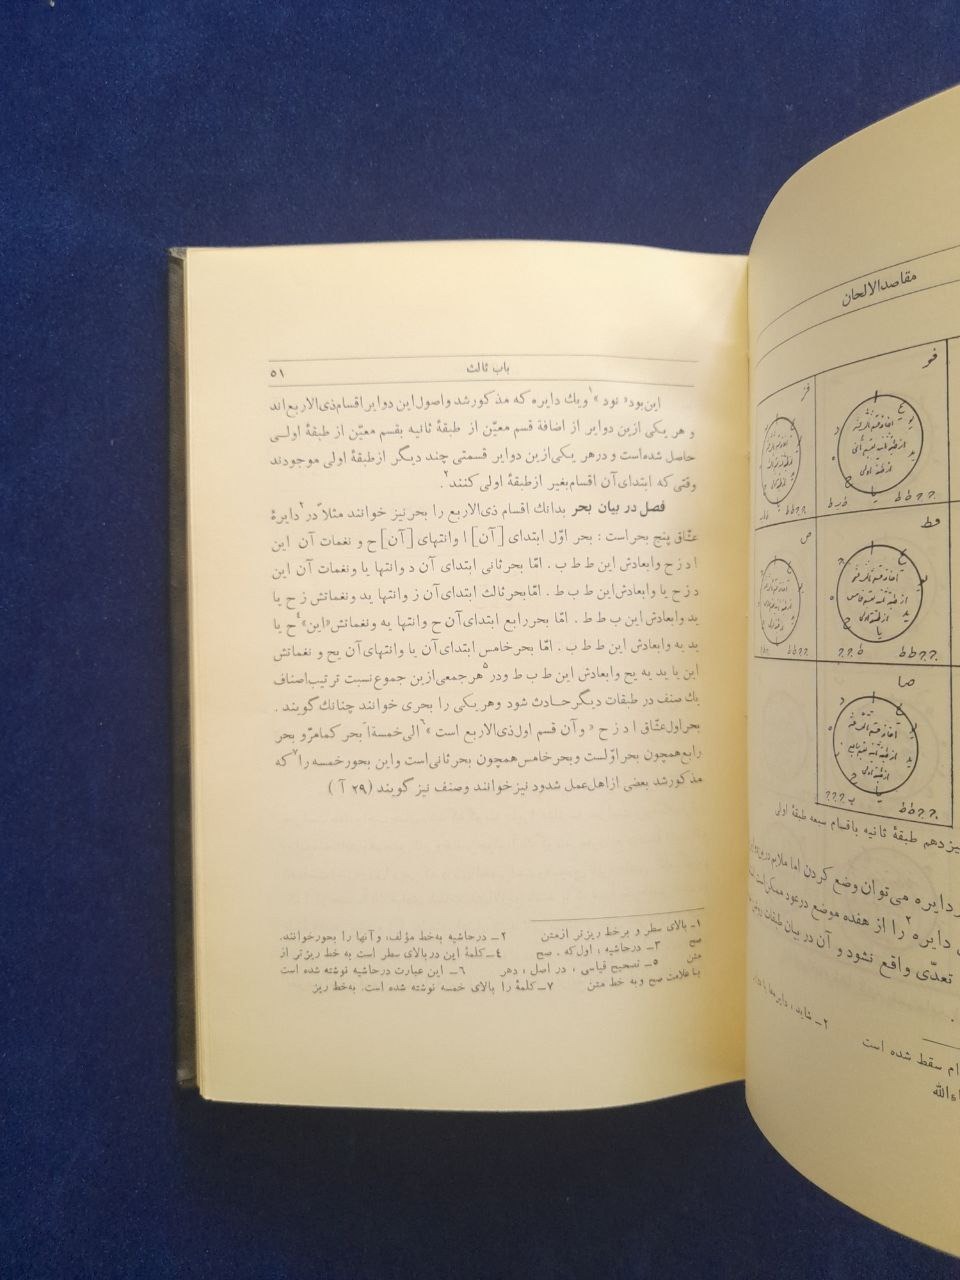 باب ثالث ۵۱
این بود «نود»۱ ویك دایره که مذکورشد واصول این دوایر اقسام ذی‌الاربع‌اند
و هر یکی ازین دوایر از اضافهٔ قسم معیّن از طبقهٔ ثانیه بقسم معیّن از طبقهٔ اولی
حاصل شده‌است و درهر یکی‌ازین دوایر قسمتی چند دیگر ازطبقهٔ اولی موجودند
وقتی که ابتدای‌آن اقسام‌بغیر ازطبقهٔ اولی کنند۲.
فصل در بیان بحر بدانك اقسام ذی‌الاربع را بحر نیز خوانند مثلاً در۳ دایرهٔ
عشّاق پنج بحراست : بحر اوّل ابتدای [آن] ا وانتهای [آن] ح و نغمات آن این
ا د ز ح وابعادش این ط ط ب . امّا بحرثانی ابتدای آن د وانتها یا ونغمات آن این
د ز ح یا وابعادش‌این ط ب ط . امّا بحرثالث ابتدای آن ز وانتها ید ونغماتش ز ح یا
ید وابعادش این ب ط ط . امّا بحررابع ابتدای‌آن ح وانتها یه ونغماتش«این»۴ ح یا
ید یه وابعادش این ط ط ب . امّا بحرخامس ابتدای‌آن یا وانتهای‌آن یح و نغماتش
این یا ید یه یح وابعادش این ط ب ط ودر۵ هر جمعی‌ازین جموع نسبت ترتیب‌اصناف
یك صنف در طبقات دیگرحادث شود وهریکی را بحری خوانند چنانك گویند .
بحراول عشّاق ا د ز ح «و آن قسم اول ذی‌الاربع است»۶ الی خمسة ابحر کمامرّ و بحر
رابع‌همچون بحراوّلست وبحرخامس همچون بحرثانی‌است واین بحورخمسه را۷ که
مذکورشد بعضی ازاهل‌عمل شدود نیزخوانند وصنف نیز گویند (۲۹ آ)
۱ـ بالای سطر و برخط ریزتر ازمتن ۲ـ درحاشیه به‌خط مؤلف، وآنها را بحورخوانند.
صح ۳ـ درحاشیه ؛ اول‌که . صح ۴ـ کلمهٔ این دربالای سطر است به خط ریزتر از
متن ۵ـ تصحیح قیاسی ، در اصل ؛ دهر ۶ـ این عبارت درحاشیه نوشته شده است
با علامت صح وبه خط متن ۷ـ کلمهٔ را بالای خمسه نوشته شده است. به‌خط ریز
مقاصدالالحان
فو
فز
فط
ص
صا
یزدهم طبقهٔ ثانیه باقسام سبعه طبقهٔ اولی
دایره می‌توان وضع کردن اما ملایم
دایره۲ را از هفده موضع درعود ممکن‌است
تعدّی واقع نشود و آن در بیان طبقات
۲ـ شاید ؛ دایره‌ها
ام سقط شده است